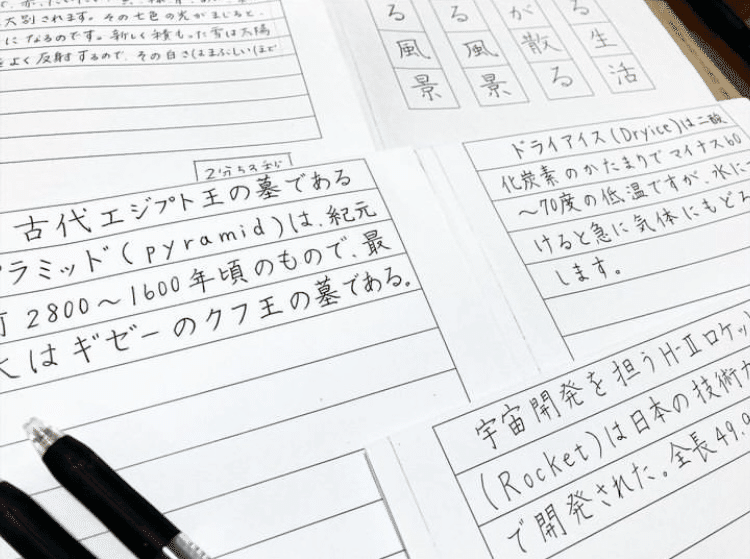 大別されます。その七色の光がまじると、
になるのです。新しく積もった雪は太陽
よく反射するので、その白さはまぶしいほど
る風景
る風景
が散る
生活
古代エジプト王の墓である
ラミッド(pyramid)は、紀元
前2800〜1600年頃のもので、最
大はギゼーのクフ王の墓である。
ドライアイス(Dryice)は二酸
化炭素のかたまりでマイナス60
〜70度の低温ですが、水につ
けると急に気体にもどろ
します。
宇宙開発を担うH-Ⅱロケット
(Rocket)は日本の技術力
で開発された。全長49.